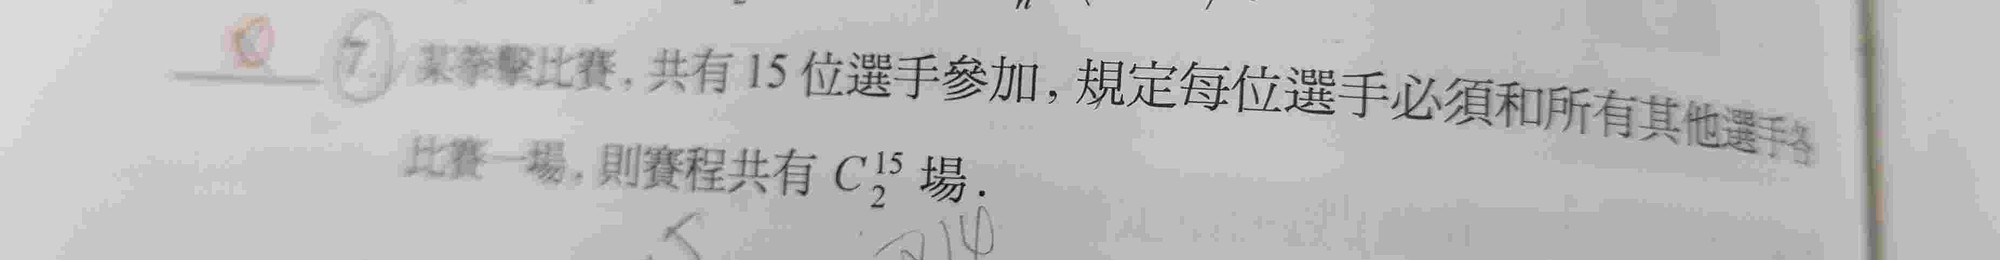 7. 某拳擊比賽，共有 15 位選手參加，規定每位選手必須和所有其他選手各
比賽一場，則賽程共有 C₂¹⁵ 場．